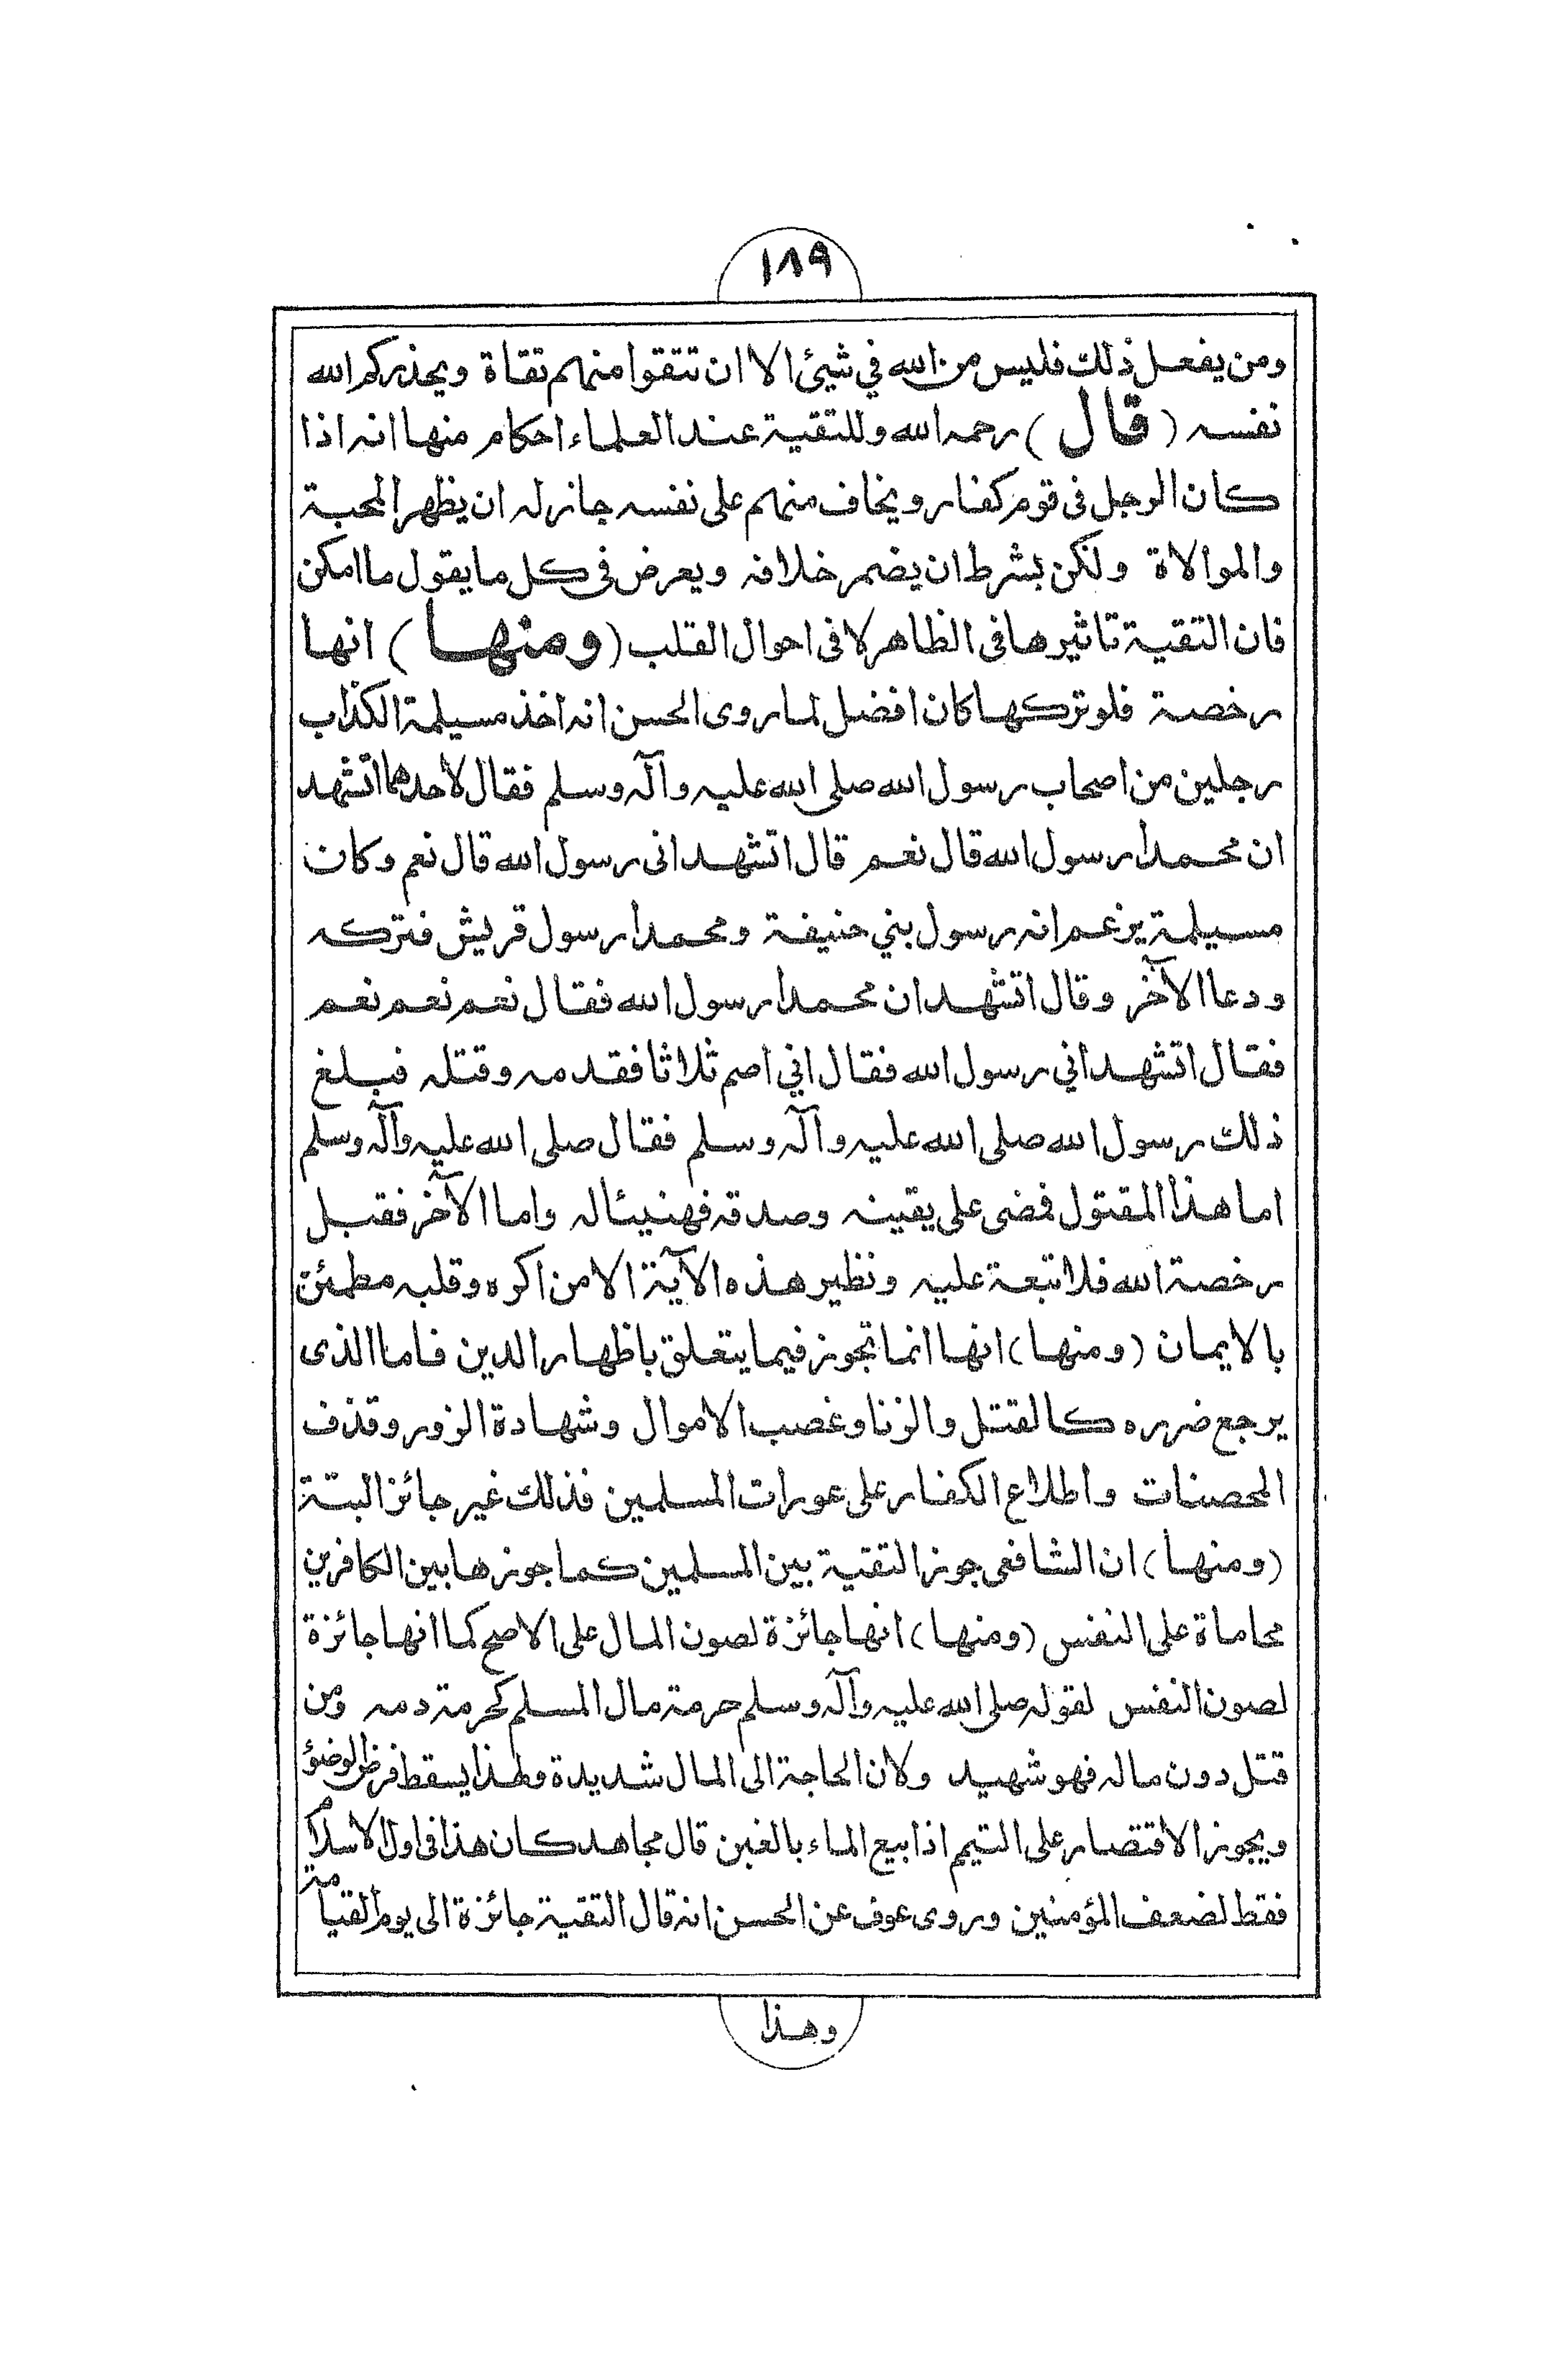 ١٨٩
ومن يفعل ذلك فليس من الله في شيئ الا ان تتقوا منهم تقاة ويحذركم الله
نفسه (قال) رحمه الله وللتقية عند العلماء احكام منها انه اذا
كان الرجل فى قوم كفار ويخاف منهم على نفسه جاز له ان يظهر المحبة
والموالاة ولكن بشرط ان يضمر خلافه ويعرض فى كل ما يقول ما امكن
فان التقية تاثيرها فى الظاهر لا فى احوال القلب (ومنها) انها
رخصة فلو تركها كان افضل لما روى الحسن انه اخذ مسيلمة الكذاب
رجلين من اصحاب رسول الله صلى الله عليه وآله وسلم فقال لأحدهما اتشهد
ان محمدا رسول الله قال نعم قال اتشهد انى رسول الله قال نعم وكان
مسيلمة يزعم انه رسول بني حنيفة ومحمدا رسول قريش فتركه
ودعا الآخر وقال اتشهد ان محمدا رسول الله فقال نعم نعم نعم
فقال اتشهد اني رسول الله فقال اني اصم ثلاثا فقدمه وقتله فبلغ
ذلك رسول الله صلى الله عليه وآله وسلم فقال صلى الله عليه وآله وسلم
اما هذا المقتول فمضى على يقينه وصدقه فهنيئا له واما الآخر فقبل
رخصة الله فلا تبعة عليه ونظير هذه الآية الا من اكره وقلبه مطمئن
بالايمان (ومنها) انها انما تجوز فيما يتعلق باظهار الدين فاما الذى
يرجع ضرره كالقتل والزنا وغصب الاموال وشهادة الزور وقذف
المحصنات واطلاع الكفار على عورات المسلمين فذلك غير جائز البتة
(ومنها) ان الشافعى جوز التقية بين المسلمين كما جوزها بين الكافرين
محاماة على النفس (ومنها) انها جائزة لصون المال على الاصح كما انها جائزة
لصون النفس لقوله صلى الله عليه وآله وسلم حرمة مال المسلم كحرمة دمه ومن
قتل دون ماله فهو شهيد ولان الحاجة الى المال شديدة ولهذا يسقط فرض الوضؤ
ويجوز الاقتصار على التيمم اذا بيع الماء بالغبن قال مجاهد كان هذا فى اول الاسلام
فقط لضعف المؤمنين وروى عوف عن الحسن انه قال التقية جائزة الى يوم القيامة
وهذا